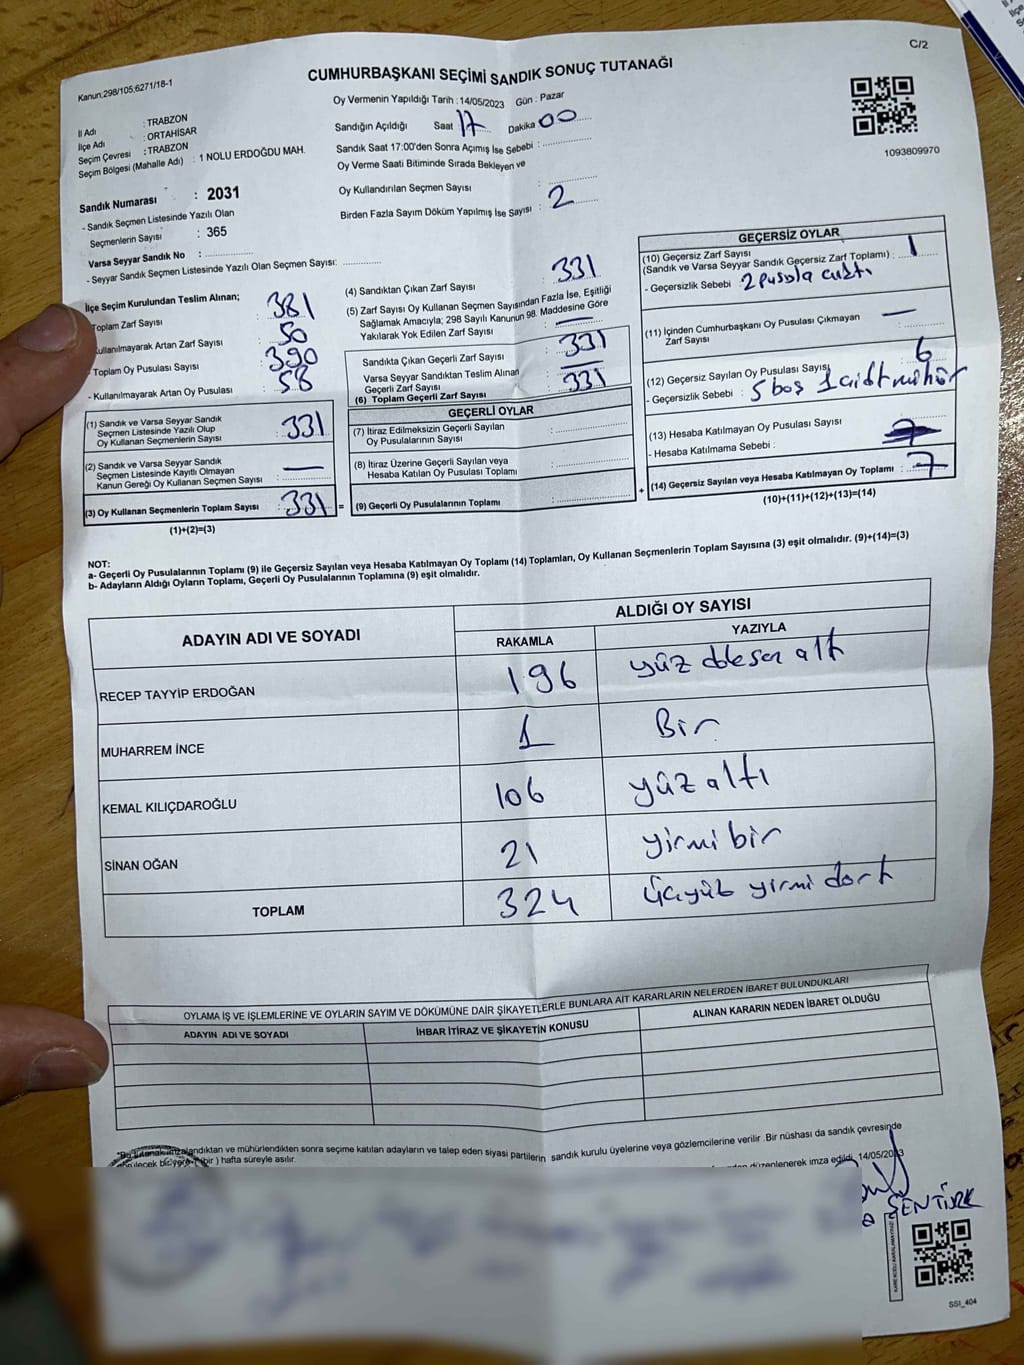 C/2
Kanun;298/105,6271/18-1
CUMHURBAŞKANI SEÇİMİ SANDIK SONUÇ TUTANAĞI
İl Adı : TRABZON
İlçe Adı : ORTAHİSAR
Seçim Çevresi : TRABZON
Seçim Bölgesi (Mahalle Adı) : 1 NOLU ERDOĞDU MAH.
Oy Vermenin Yapıldığı Tarih : 14/05/2023 Gün : Pazar
Sandığın Açıldığı Saat 17 Dakika 00
Sandık Saat 17:00'den Sonra Açımış İse Sebebi :
Oy Verme Saati Bitiminde Sırada Bekleyen ve
Oy Kullandırılan Seçmen Sayısı :
Birden Fazla Sayım Döküm Yapılmış İse Sayısı : 2
1093809970
Sandık Numarası : 2031
- Sandık Seçmen Listesinde Yazılı Olan
Seçmenlerin Sayısı : 365
Varsa Seyyar Sandık No :
- Seyyar Sandık Seçmen Listesinde Yazılı Olan Seçmen Sayısı:
İlçe Seçim Kurulundan Teslim Alınan;
Toplam Zarf Sayısı : 381
Kullanılmayarak Artan Zarf Sayısı : 50
- Toplam Oy Pusulası Sayısı : 390
- Kullanılmayarak Artan Oy Pusulası : 58
(1) Sandık ve Varsa Seyyar Sandık
Seçmen Listesinde Yazılı Olup
Oy Kullanan Seçmenlerin Sayısı : 331
(2) Sandık ve Varsa Seyyar Sandık
Seçmen Listesinde Kayıtlı Olmayan
Kanun Gereği Oy Kullanan Seçmen Sayısı : —
(3) Oy Kullanan Seçmenlerin Toplam Sayısı : 331 =
(1)+(2)=(3)
(4) Sandıktan Çıkan Zarf Sayısı 331
(5) Zarf Sayısı Oy Kullanan Seçmen Sayısından Fazla İse, Eşitliği
Sağlamak Amacıyla; 298 Sayılı Kanunun 98. Maddesine Göre
Yakılarak Yok Edilen Zarf Sayısı —
Sandıkta Çıkan Geçerli Zarf Sayısı : 331
Varsa Seyyar Sandıktan Teslim Alınan
Geçerli Zarf Sayısı : —
(6) Toplam Geçerli Zarf Sayısı : 331
GEÇERLİ OYLAR
(7) İtiraz Edilmeksizin Geçerli Sayılan
Oy Pusulalarının Sayısı :
(8) İtiraz Üzerine Geçerli Sayılan veya
Hesaba Katılan Oy Pusulası Toplamı :
(9) Geçerli Oy Pusulalarının Toplamı : +
GEÇERSİZ OYLAR
(10) Geçersiz Zarf Sayısı
(Sandık ve Varsa Seyyar Sandık Geçersiz Zarf Toplamı) : 1
- Geçersizlik Sebebi 2 pusula çıktı
(11) İçinden Cumhurbaşkanı Oy Pusulası Çıkmayan
Zarf Sayısı —
(12) Geçersiz Sayılan Oy Pusulası Sayısı 6
- Geçersizlik Sebebi : 5 boş 1 çift mühür
(13) Hesaba Katılmayan Oy Pusulası Sayısı
- Hesaba Katılmama Sebebi :
(14) Geçersiz Sayılan veya Hesaba Katılmayan Oy Toplamı : 7
(10)+(11)+(12)+(13)=(14)
NOT:
a- Geçerli Oy Pusulalarının Toplamı (9) ile Geçersiz Sayılan veya Hesaba Katılmayan Oy Toplamı (14) Toplamları, Oy Kullanan Seçmenlerin Toplam Sayısına (3) eşit olmalıdır. (9)+(14)=(3)
b- Adayların Aldığı Oyların Toplamı, Geçerli Oy Pusulalarının Toplamına (9) eşit olmalıdır.
ADAYIN ADI VE SOYADI ALDIĞI OY SAYISI
RAKAMLA YAZIYLA
RECEP TAYYİP ERDOĞAN 196 yüz doksan altı
MUHARREM İNCE 1 Bir
KEMAL KILIÇDAROĞLU 106 yüz altı
SİNAN OĞAN 21 yirmi bir
TOPLAM 324 üçyüz yirmi dört
OYLAMA İŞ VE İŞLEMLERİNE VE OYLARIN SAYIM VE DÖKÜMÜNE DAİR ŞİKAYETLERLE BUNLARA AİT KARARLARIN NELERDEN İBARET BULUNDUKLARI
ADAYIN ADI VE SOYADI İHBAR İTİRAZ VE ŞİKAYETİN KONUSU ALINAN KARARIN NEDEN İBARET OLDUĞU
mühürlendikten sonra seçime katılan adayların ve talep eden siyasi partilerin sandık kurulu üyelerine veya gözlemcilerine verilir .Bir nüshası da sandık çevresinde
bir ) hafta süreyle asılır. düzenlenerek imza edildi. 14/05/2023
ŞENTÜRK
SSI_404